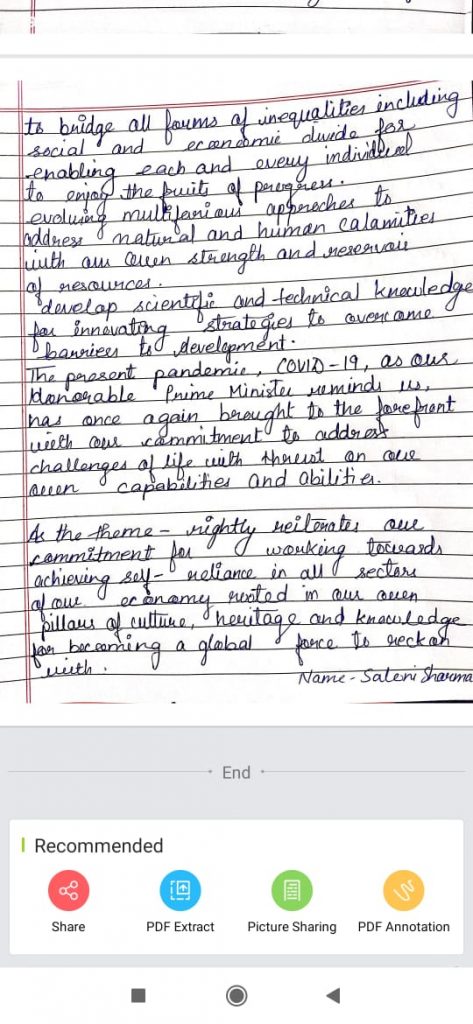 to bridge all forms of inequalities including
social and economic divide for
enabling each and every individual
to enjoy the fruits of progress.
evolving multifarious approches to
address natural and human calamities
with our own strength and reservoir
of resources.
develop scientific and technical knowledge
for innovating strategies to overcome
barriers to development.
The present pandemic, COVID-19, as our
Honorable Prime Minister reminds us,
has once again brought to the forefront
with our commitment to address
challenges of life with thrust on our
own capabilities and abilities.
As the theme - rightly reiterates our
commitment for working towards
achieving self-reliance in all sectors
of our economy rooted in our own
pillars of culture, heritage and knowledge
for becoming a global force to reckon
with.
Name - Saloni Sharma
End
Recommended
Share PDF Extract Picture Sharing PDF Annotation